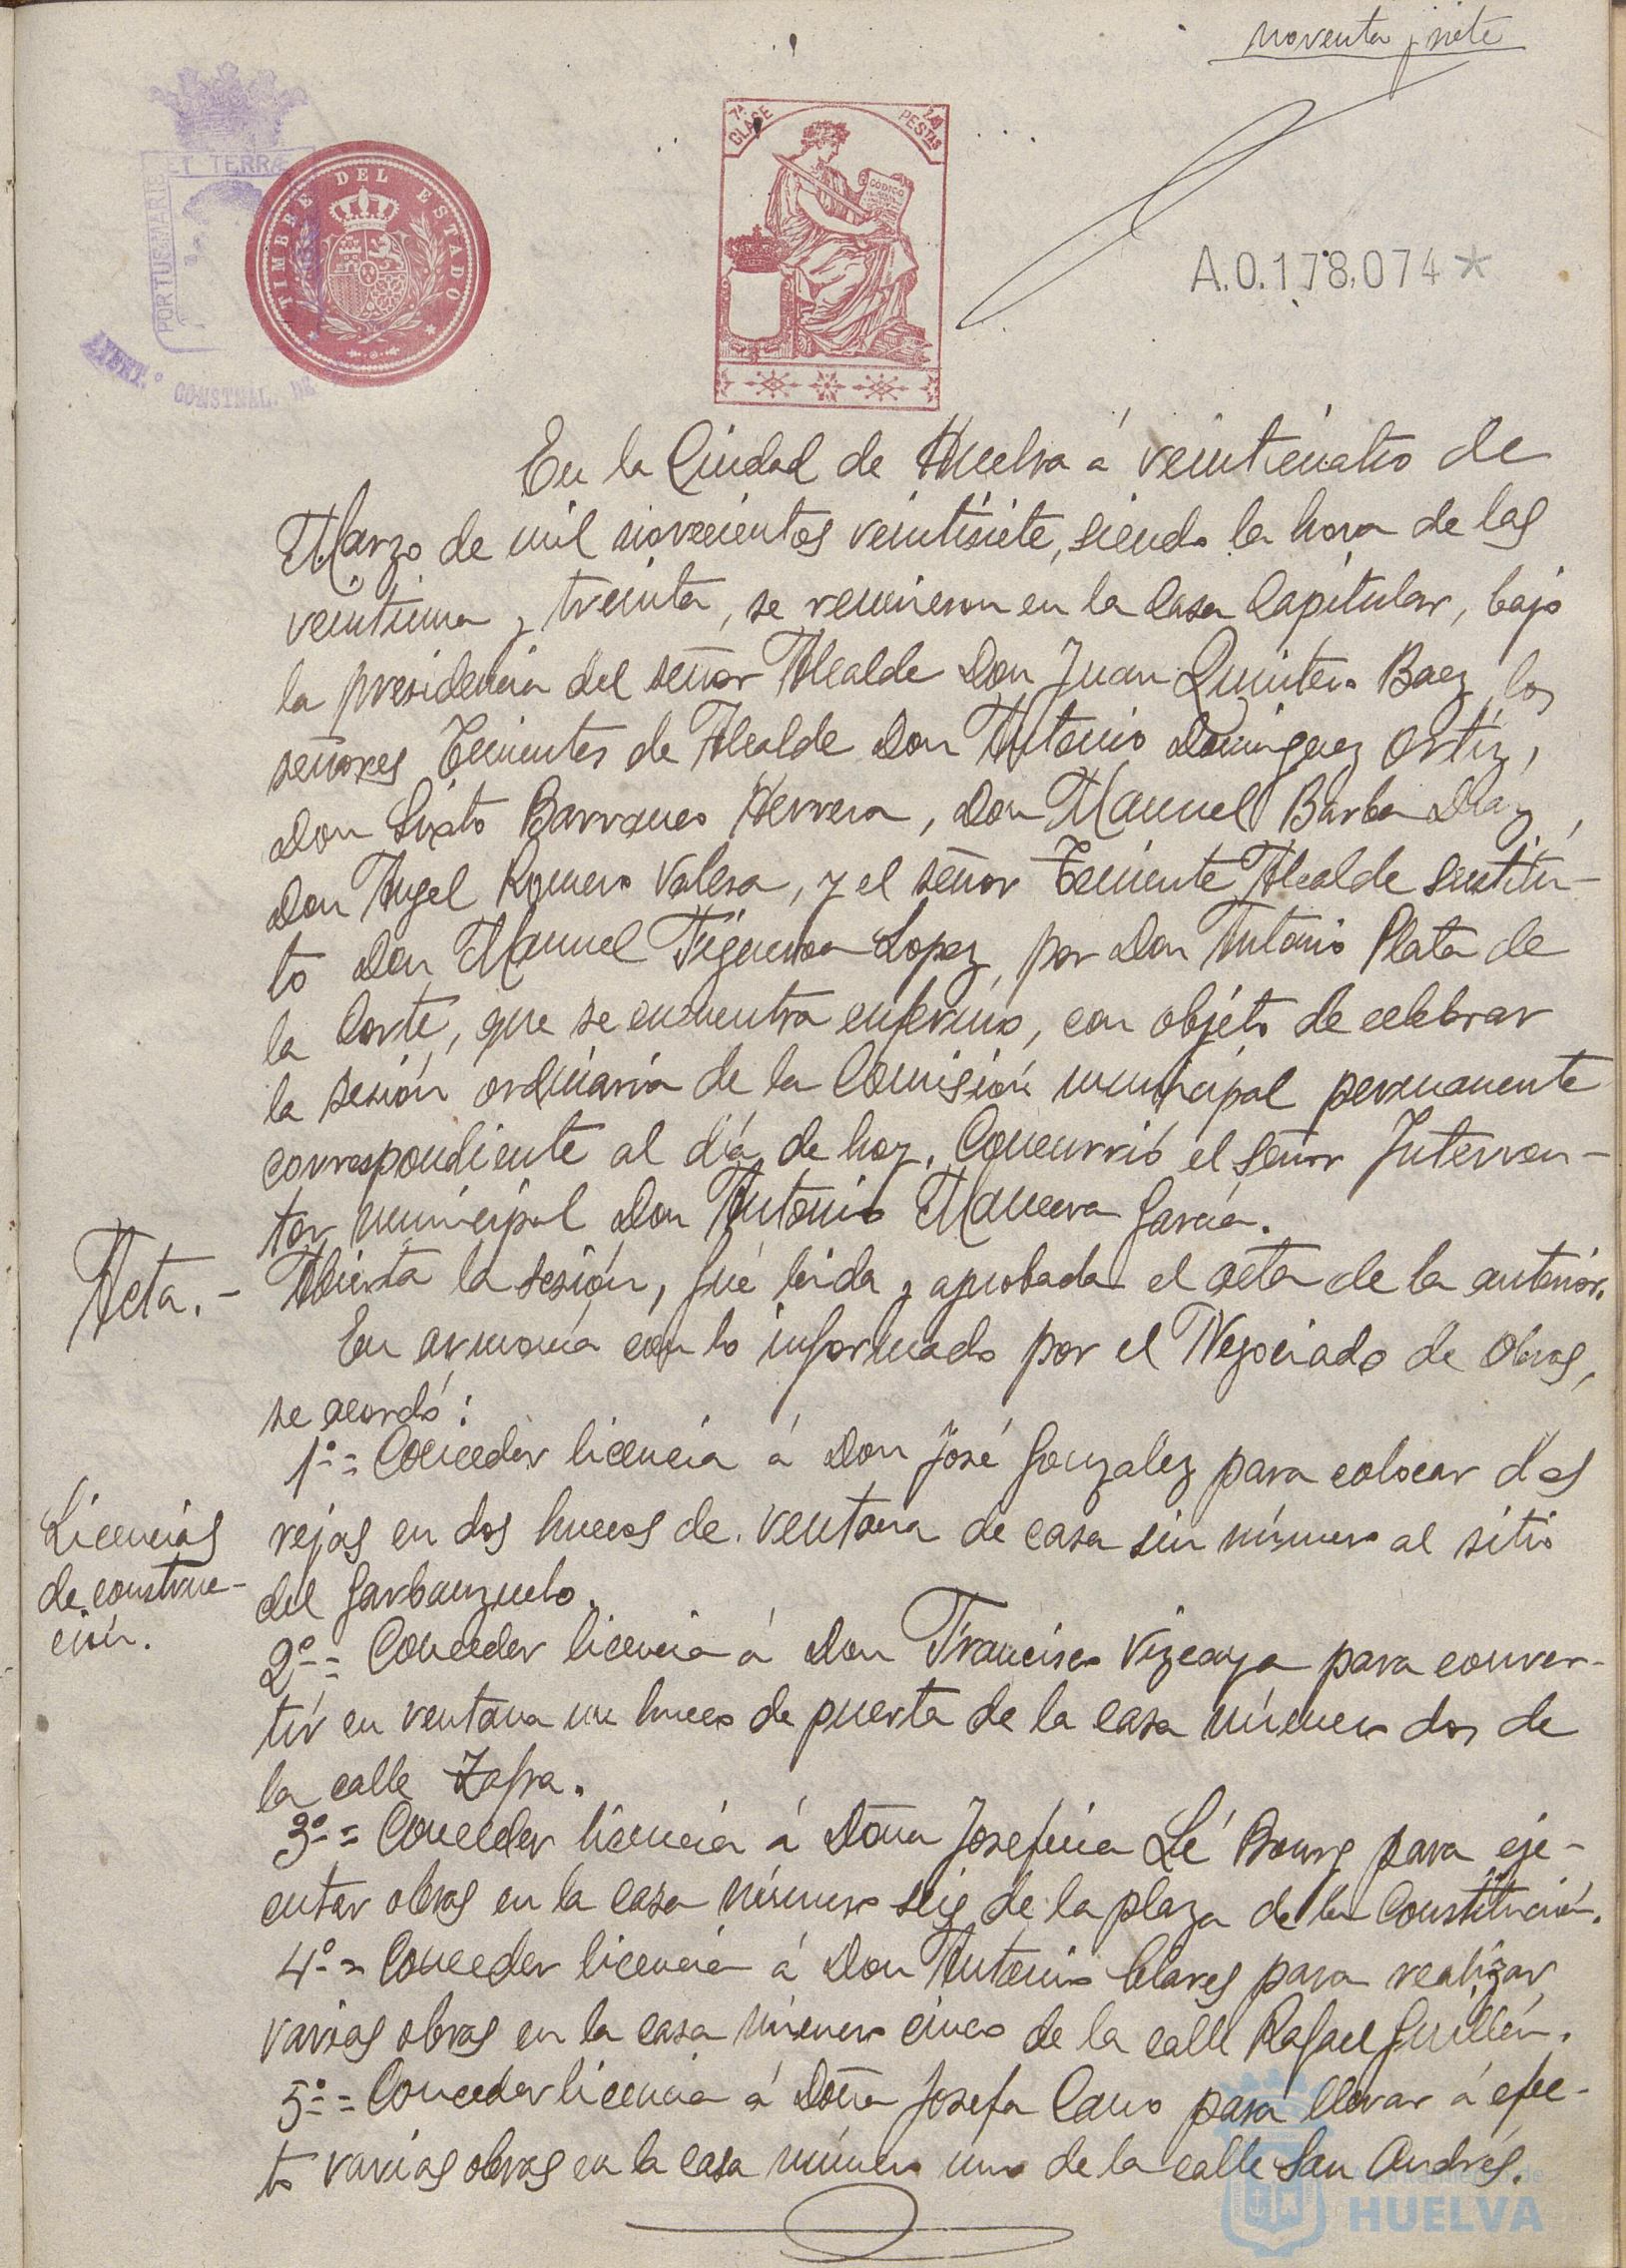 noventa y siete
7ª CLASE
PESTAS
CÓDIGO
TIMBRE DEL ESTADO
PORTUS MARIS ET TERRÆ
AYUNT.º CONSTNAL. DE
A.0.178.074*
En la Ciudad de Huelva á veinticuatro de
Marzo de mil novecientos veintisiete, siendo la hora de las
veintiuna y treinta, se reunieron en la Casa Capitular, bajo
la presidencia del señor Alcalde Don Juan Quintero Baez, los
señores Tenientes de Alcalde Don Antonio Dominguez Ortiz,
Don Sixto Barranco Herrera, Don Manuel Barba Diaz,
Don Angel Romero Valera, y el señor Teniente Alcalde sustitu-
to Don Manuel Figueroa Lopez, por Don Antonio Plata de
la Corte, que se encuentra enfermo, con objeto de celebrar
la sesión ordinaria de la Comisión municipal permanente
correspondiente al día de hoy. Concurrió el señor Interven-
tor municipal Don Antonio García.
Acta.- Abierta la sesión, fué leida y aprobada el acta de la anterior.
En armonía con lo informado por el Negociado de Obras,
se acordó:
1º = Conceder licencia á Don José Gonzalez para colocar dos
Licencias de construc-ción.
rejas en dos huecos de ventana de casa sin número al sitio
del Garbanzuelo.
2º = Conceder licencia á Don Francisco Vizcaya para conver-
tir en ventana un hueco de puerta de la casa número dos de
la calle Zafra.
3º = Conceder licencia á Doña Josefina Lé Bourg para eje-
cutar obras en la casa número seis de la plaza de la Constitución.
4º = Conceder licencia á Don Antonio Clares para realizar
varias obras en la casa número cinco de la calle Rafael Guillén.
5º = Conceder licencia á Doña Josefa Cano para llevar á efec-
to varias obras en la casa número uno de la calle San Andrés.
Ayuntamiento de
HUELVA